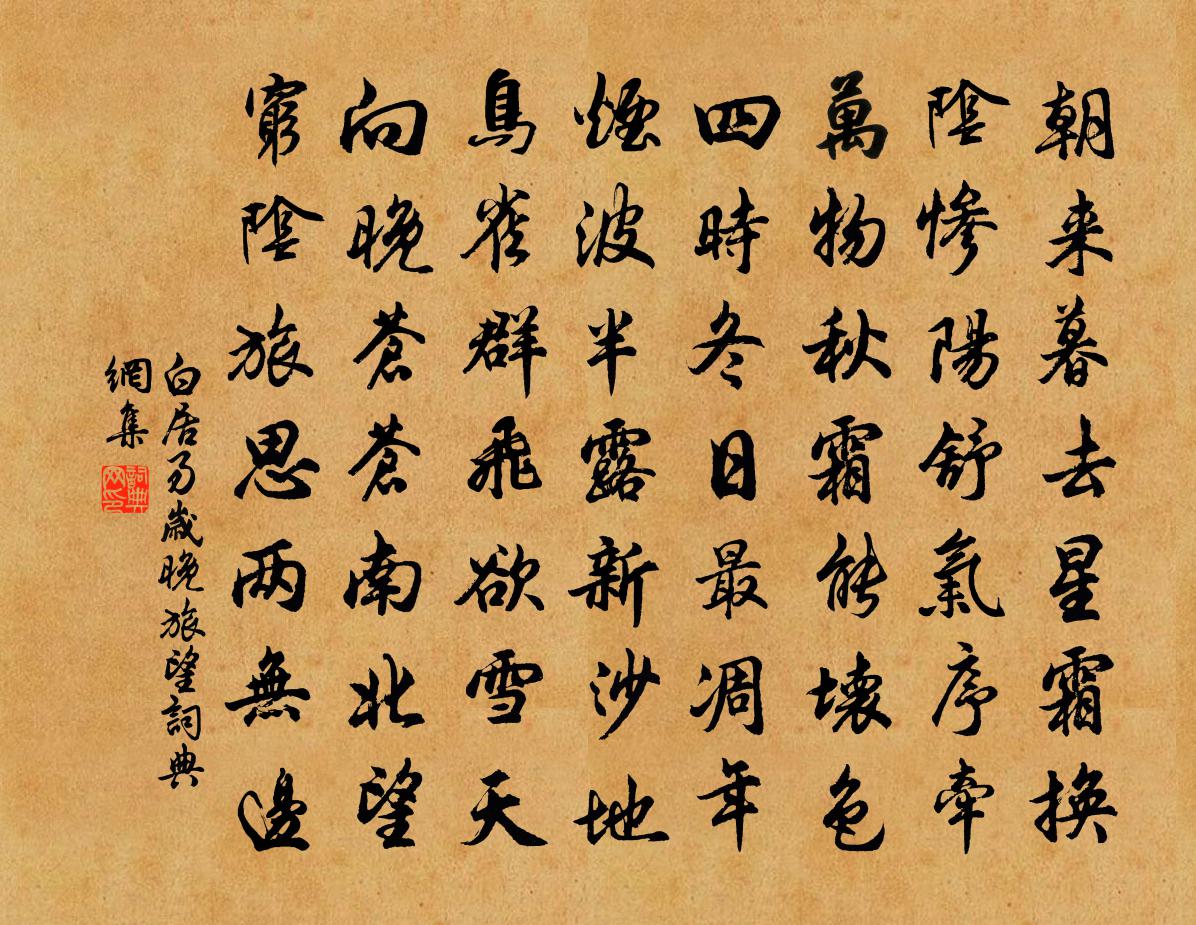 朝来暮去星霜換
陰慘陽舒氣序牽
萬物秋霜能壞色
四時冬日最凋年
煙波半露新沙地
鳥雀群飛欲雪天
向晚蒼蒼南北望
窮陰旅思两無邊
白居易歲晚旅望詞典
網集
詞典
网印